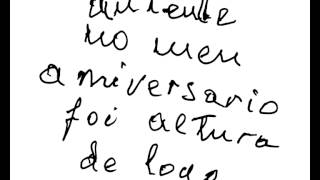 no meu
aniversario
foi altura
de